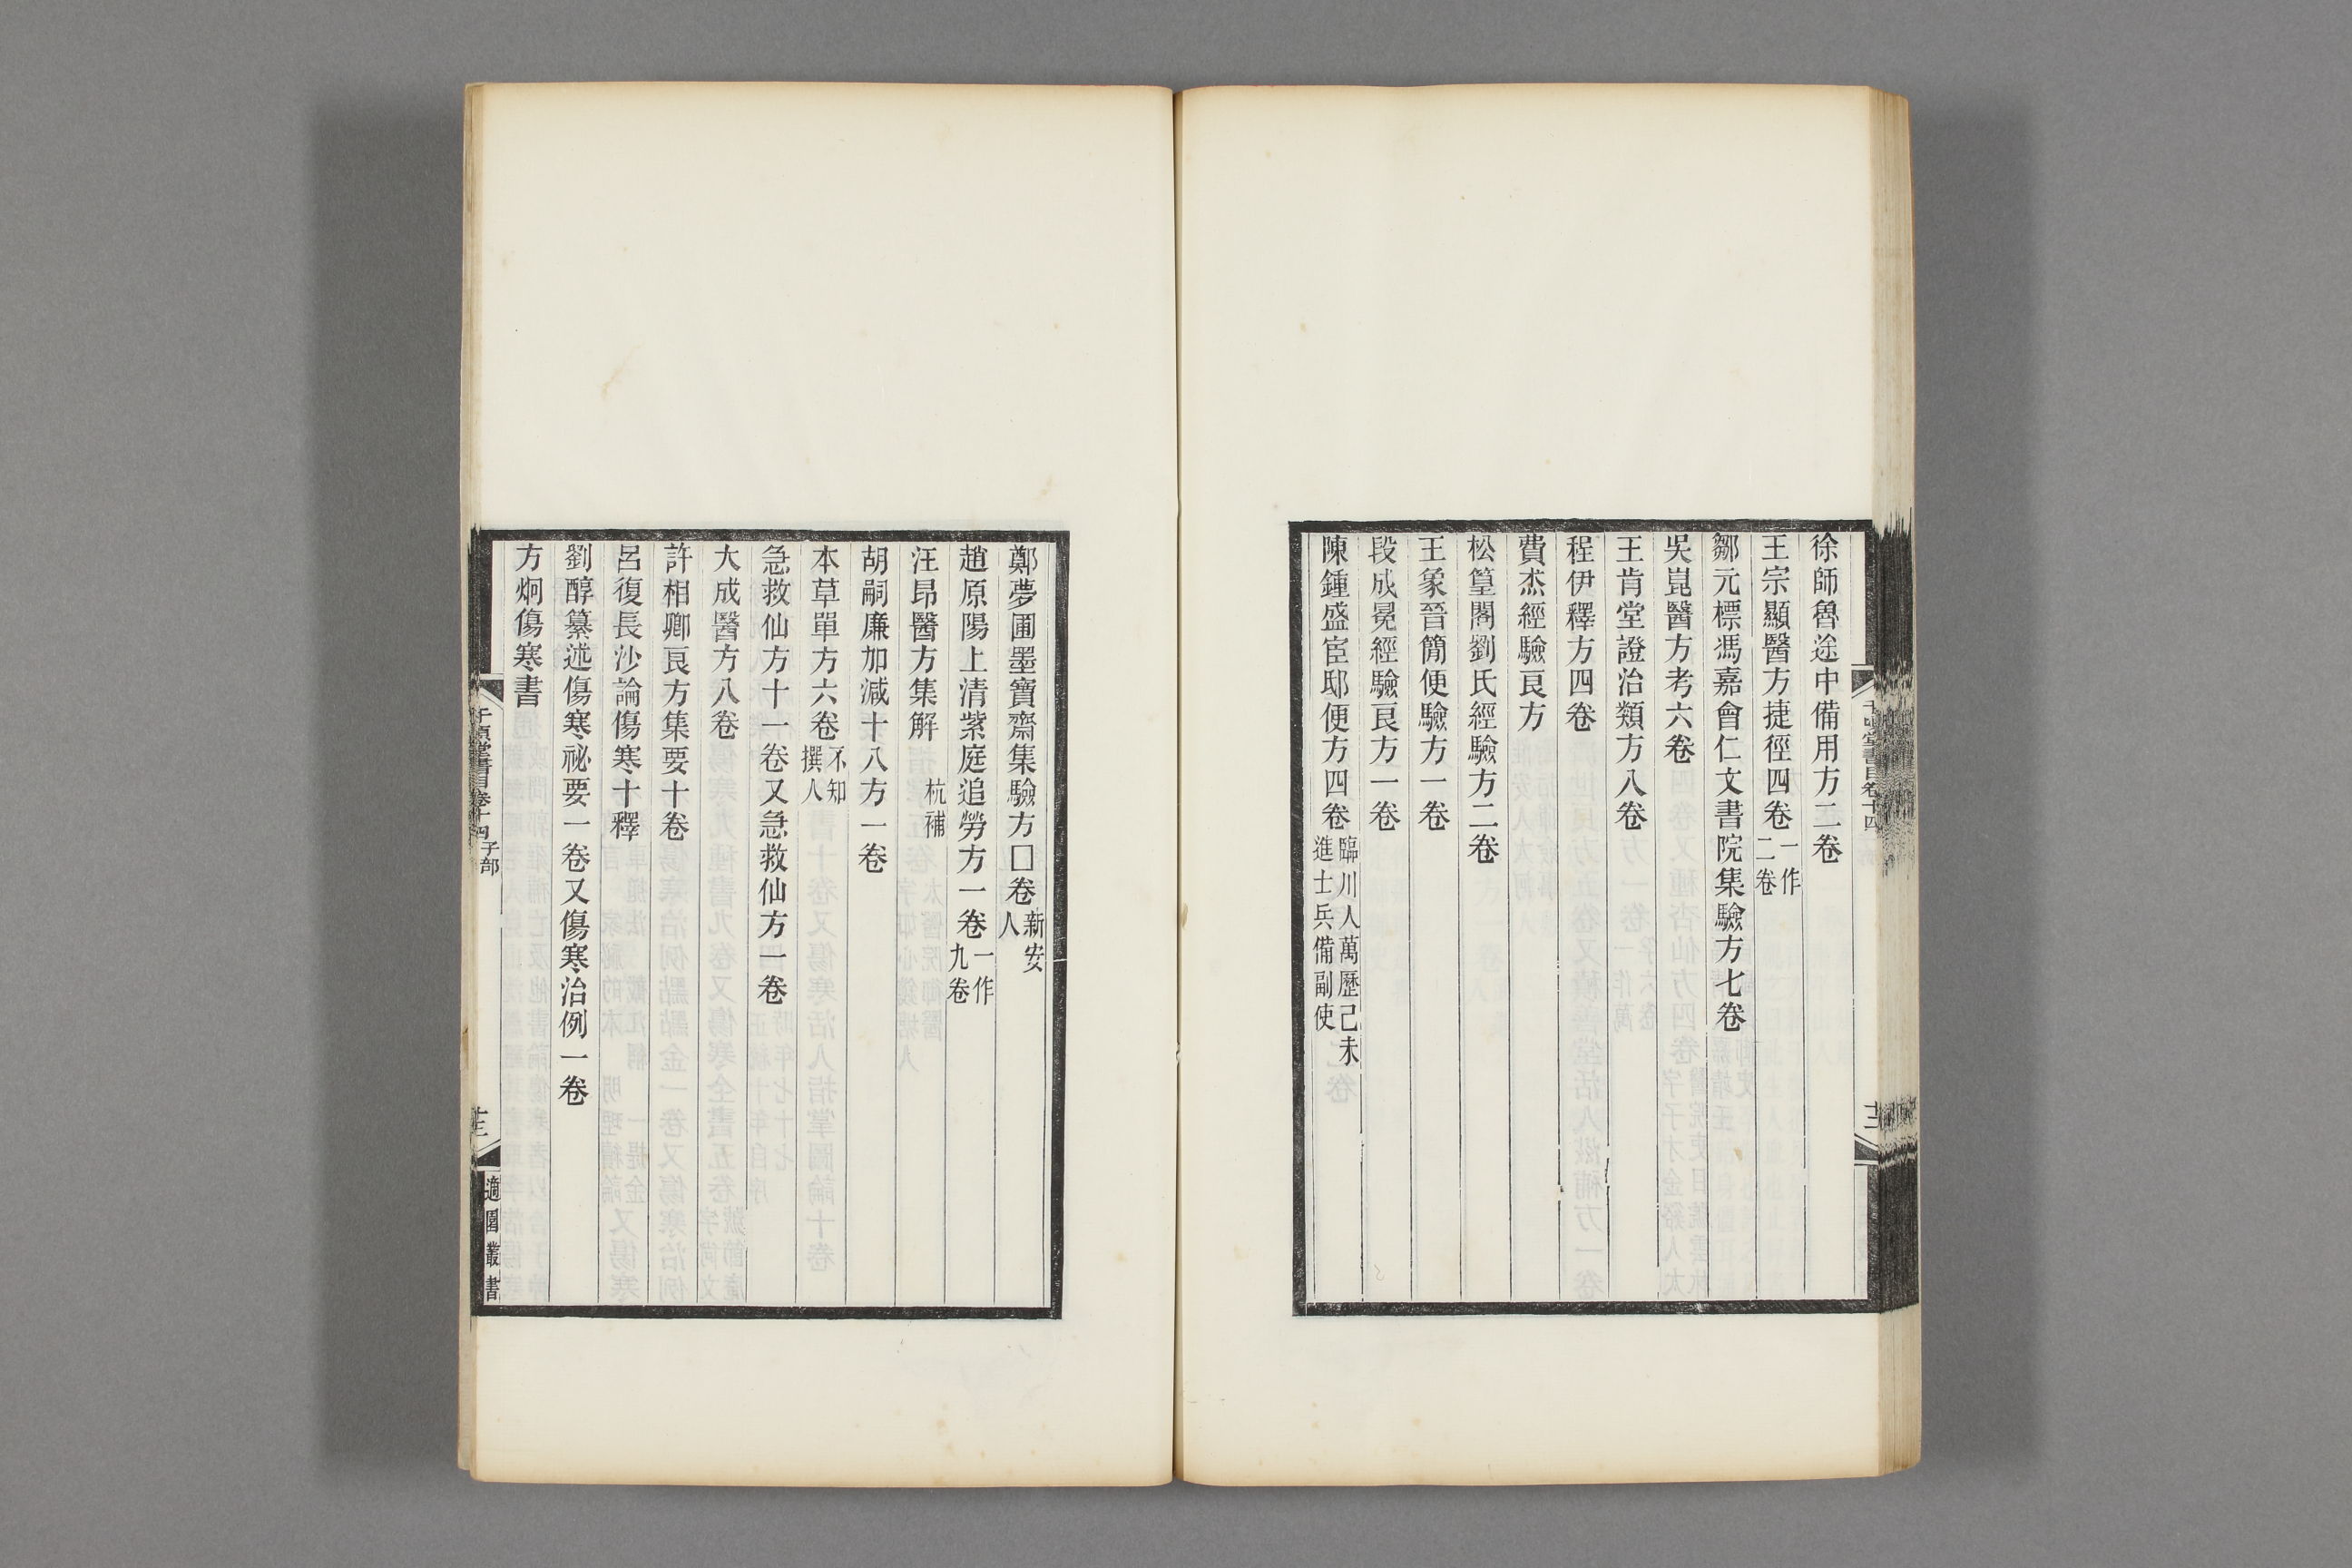 徐師魯途中備用方二卷
王宗顯醫方捷徑四卷一作二卷
鄒元標馮嘉會仁文書院集驗方七卷
吳崑醫方考六卷
王肯堂證治類方八卷
程伊釋方四卷
費杰經驗良方
松篁閣劉氏經驗方二卷
王象晉簡便驗方一卷
段成冕經驗良方一卷
陳鍾盛宦邸便方四卷臨川人萬歷己未進士兵備副使
鄭夢圃墨寶齋集驗方□卷新安人
趙原陽上清紫庭追勞方一卷一作九卷
汪昂醫方集解 杭補
胡嗣廉加減十八方一卷
本草單方六卷不知撰人
急救仙方十一卷又急救仙方一卷
大成醫方八卷
許相卿良方集要十卷
呂復長沙論傷寒十釋
劉醇纂述傷寒祕要一卷又傷寒治例一卷
方炯傷寒書
千頃堂書目卷十四 子部
十三
適園叢書